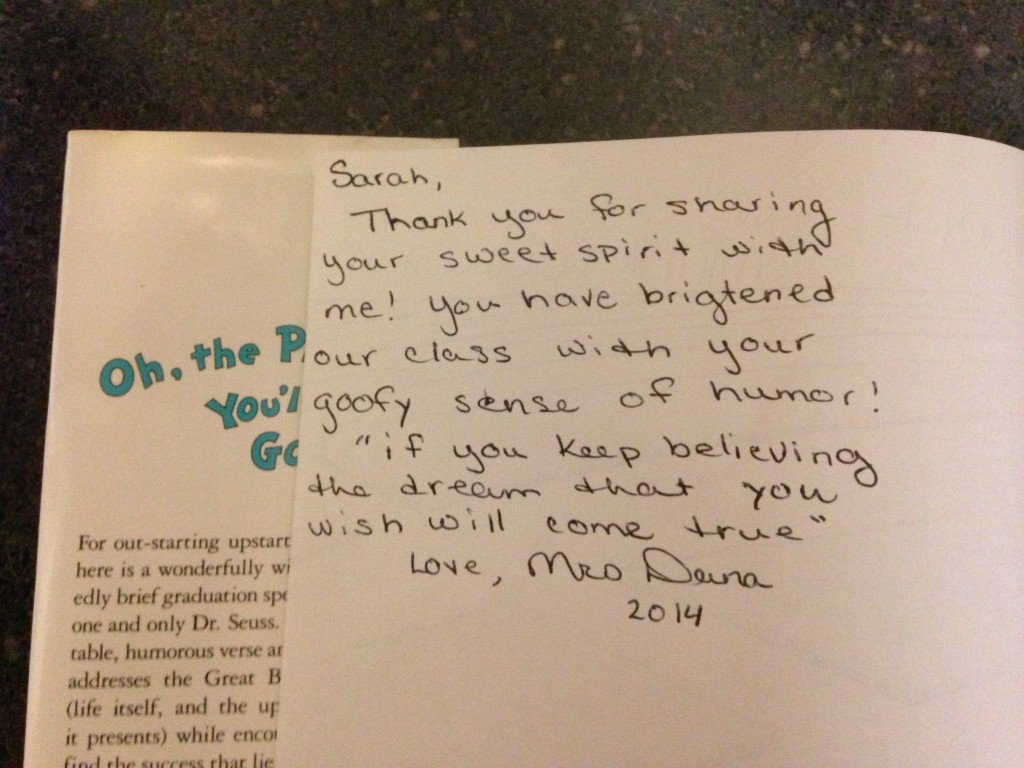 Sarah,
Thank you for sharing
your sweet spirit with
me! you have brigtened
our class with your
goofy sense of humor!
"if you keep believing
the dream that you
wish will come true"
Love, Mrs Dana
2014
Oh, the P
You'l
Go
For out-starting upstart
here is a wonderfully wi
edly brief graduation spe
one and only Dr. Seuss.
table, humorous verse ar
addresses the Great B
(life itself, and the up
it presents) while encou
find the success that lie